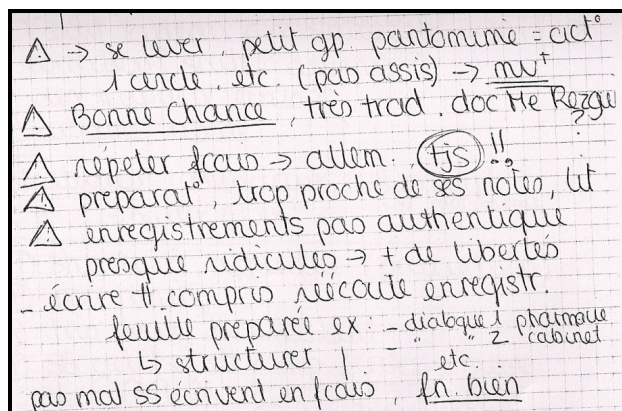 ⚠ → se lever, petit gp. pantomime = act°
1 cercle, etc. (pas assis) → mvt
⚠ Bonne Chance, très trad. doc Me Rezgui ?
⚠ répeter fcais → allem. tjs !!
⚠ préparat°, trop proche de ses notes, lit
⚠ enregistrements pas authentique
presque ridicules → + de libertés
- écrire tt compris réécoute enregistr.
feuille préparée ex: - dialogue 1 pharmacie
- " " 2 cabinet
↳ structurer | etc.
pas mal SS écrivent en fcais, fn. bien